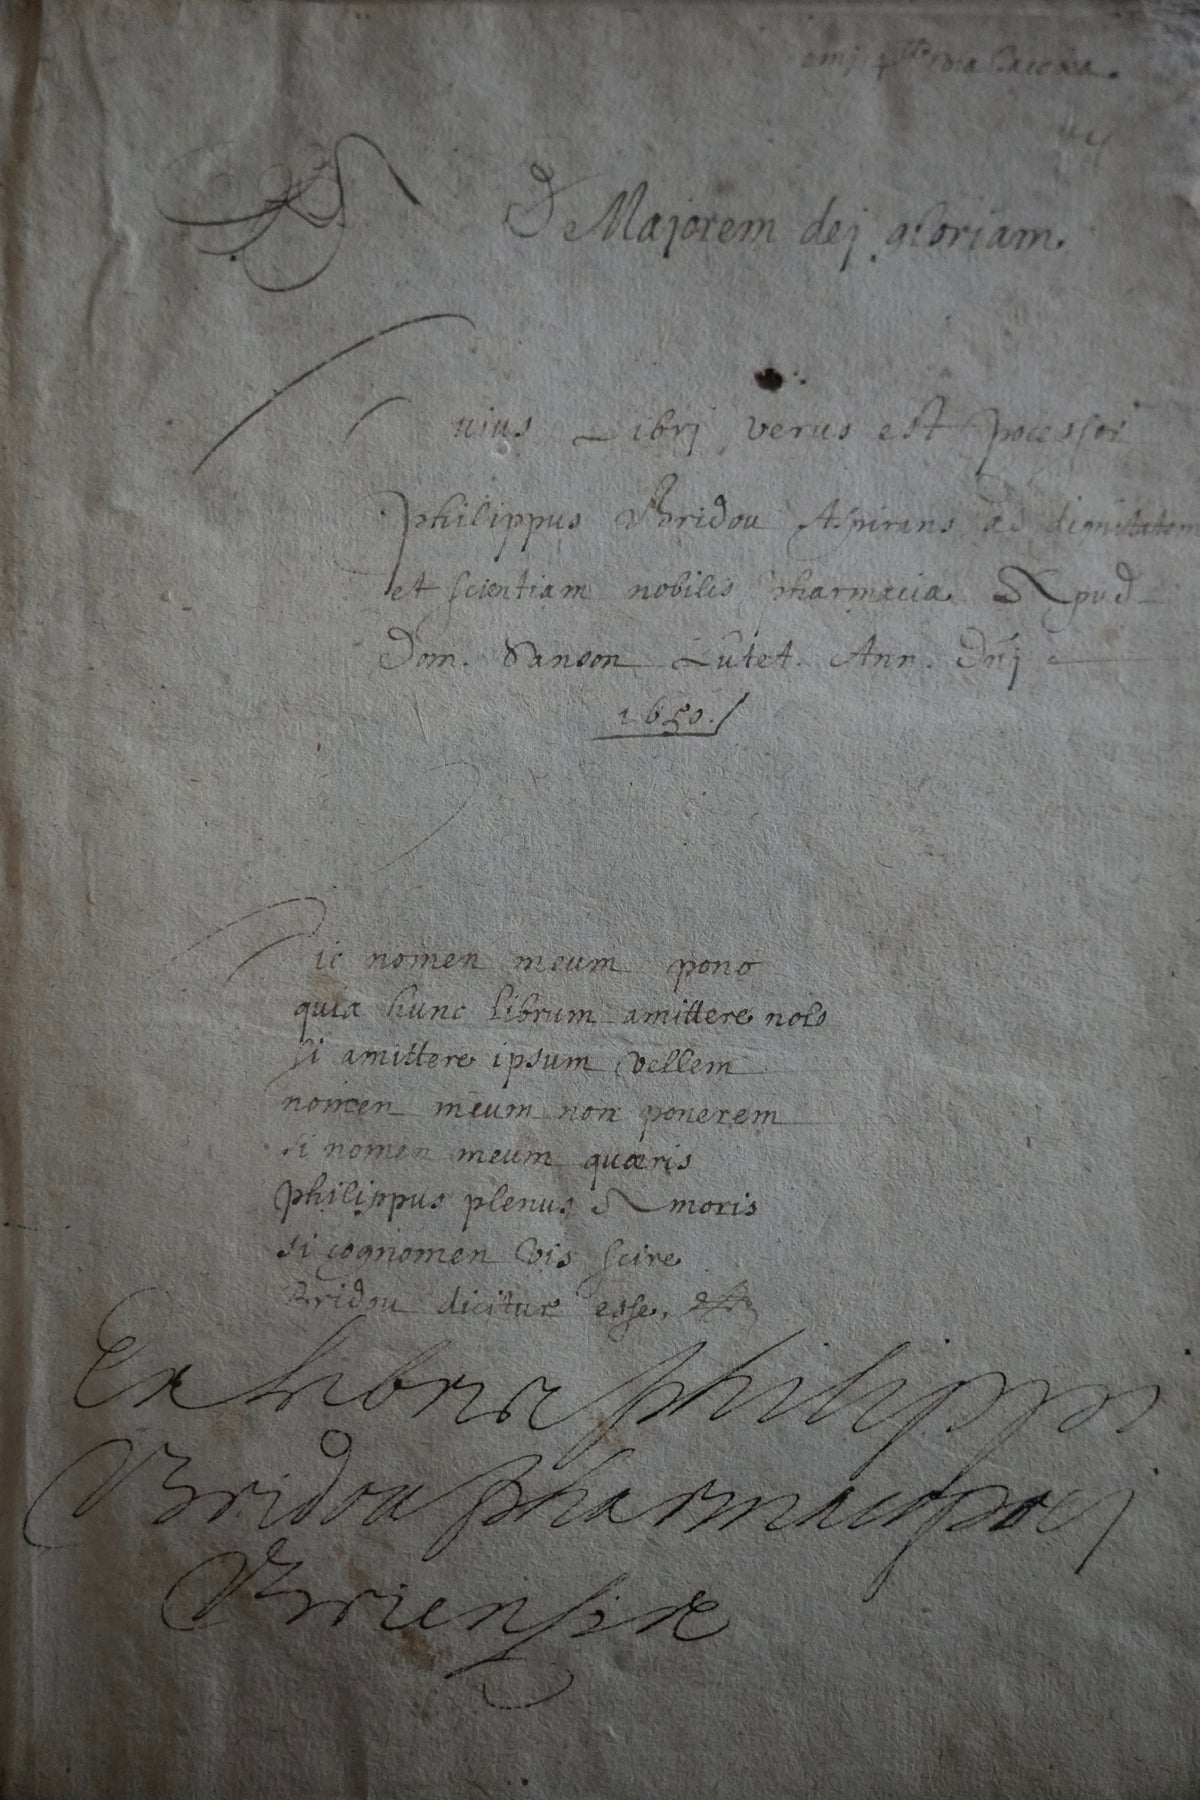 Ad Majorem dej gloriam.
Huius Librj verus est pocessor
philippus Bridou Aspirans ad dignitatem
et scientiam nobilis pharmacia Apud
Dom. Sanson Lutet. Ann. Dnj
1650.
Hic nomen meum pono
quia hunc librum amittere nolo
si amittere ipsum vellem
nomen meum non ponerem
si nomen meum quæris
philippus plenus Amoris
si cognomen vis scire
Bridou dicitur esse.
Ex Libris philippi
Bridou pharmacopoej
Briensis